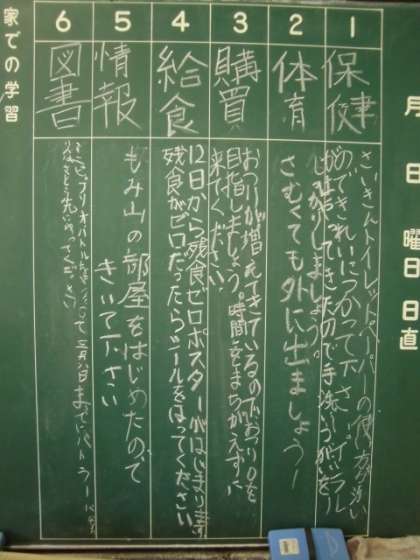 月 日 曜日 日直
1
保健
さいきんトイレットペーパーの使い方が汚い
のできれいにつかって下さい。インフル
が出てきたので手洗いうがいを
しっかりしましょう。
2
体育
さむくても外に出ましょう
3
購買
おつりが増えてきているのでおつり0を
目指しましょう。時間をまちがえずに
来てください。
4
給食
12日から残食ゼロポスターがはじまります
残食がゼロだったらシールをはってください
5
情報
もみ山の部屋をはじめたので
きいて下さい
6
図書
ビブリオバトル 三月八日までにバトラー
家での学習